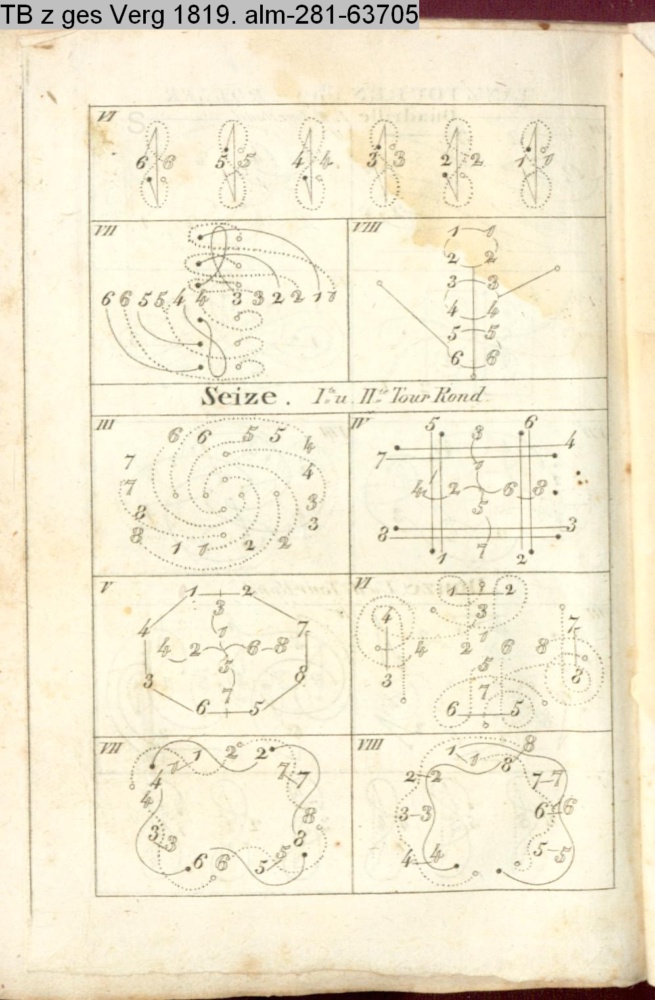 TB z ges Verg 1819. alm-281-63705
VI
6 6 5 5 4 4 3 3 2 2 1 1
VII
6 6 5 5 4 4 3 3 2 2 1 1
VIII
1 1
2 2
3 3
4 4
5 5
6 6
Seize. I.te u. II.te Tour Rond
III
6 6 5 5
7 4
7 4
8 3
8 3
1 1 2 2
IV
5 3 6
7 4
1
4 2 6 8
5
8 3
1 7 2
V
1 2
3
4 1 7
4 2 6 8
5
3 7 8
6 5
VI
1 2
4 3 7
1
4 2 6 8
5
3 7 8
6 5
VII
1 1 2 2
4 7 7
4 8
3 3 8
6 6 5 5
VIII
1 1 8 8
2 2 7 7
3 3 6 6
4 4 5 5